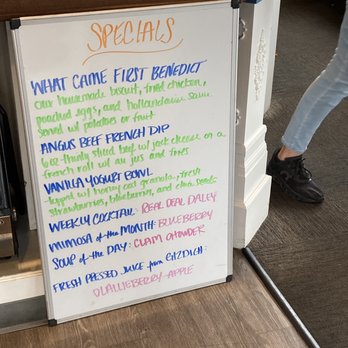 SPECIALS
WHAT CAME FIRST BENEDICT
our homemade biscuit, fried chicken,
poached eggs, and hollandaise sauce
served w/ potatoes or fruit
ANGUS BEEF FRENCH DIP
6oz thinly sliced beef w/ jack cheese on a
french roll w/ au jus and fries
VANILLA YOGURT BOWL
topped w/ honey oat granola, fresh
strawberries, blueberries, and chia seeds
WEEKLY COCKTAIL: REAL DEAL DALEY
MIMOSA of the MONTH: BLUEBERRY
SOUP of the DAY: CLAM CHOWDER
FRESH PRESSED JUICE from
OLALLIEBERRY-APPLE